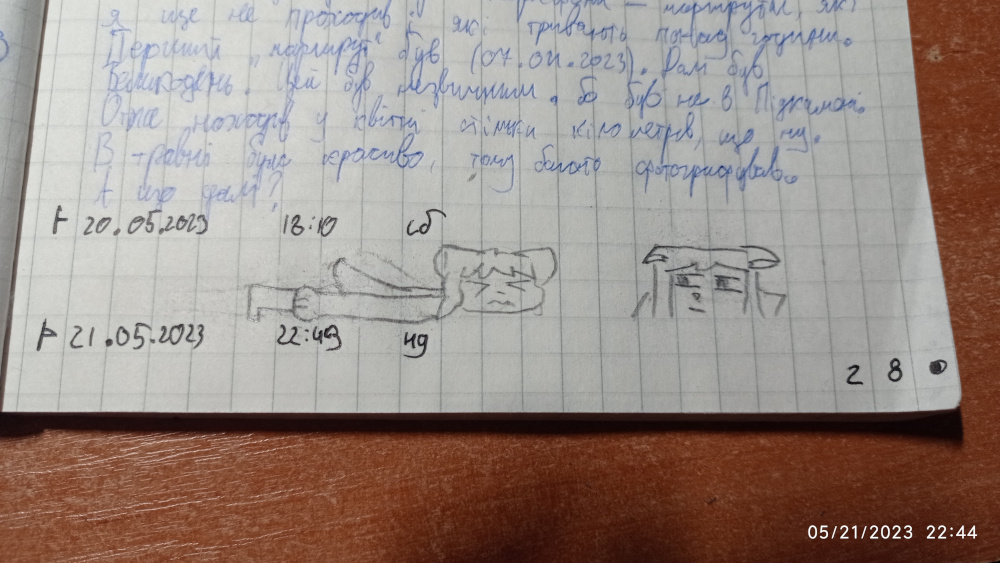 я ще не проходив маршрути, які
які тривають понад години.
Перший „маршрут“ був (07.04.2023). Був
Великдень. Цей був незвичним, бо був не в Підкамені.
Отже находив у квітні стільки кілометрів, що ну.
В травні було красиво, тому багато фотографував.
А що далі?
20.05.2023 18:10 сб
21.05.2023 22:49 нд
28
05/21/2023 22:44